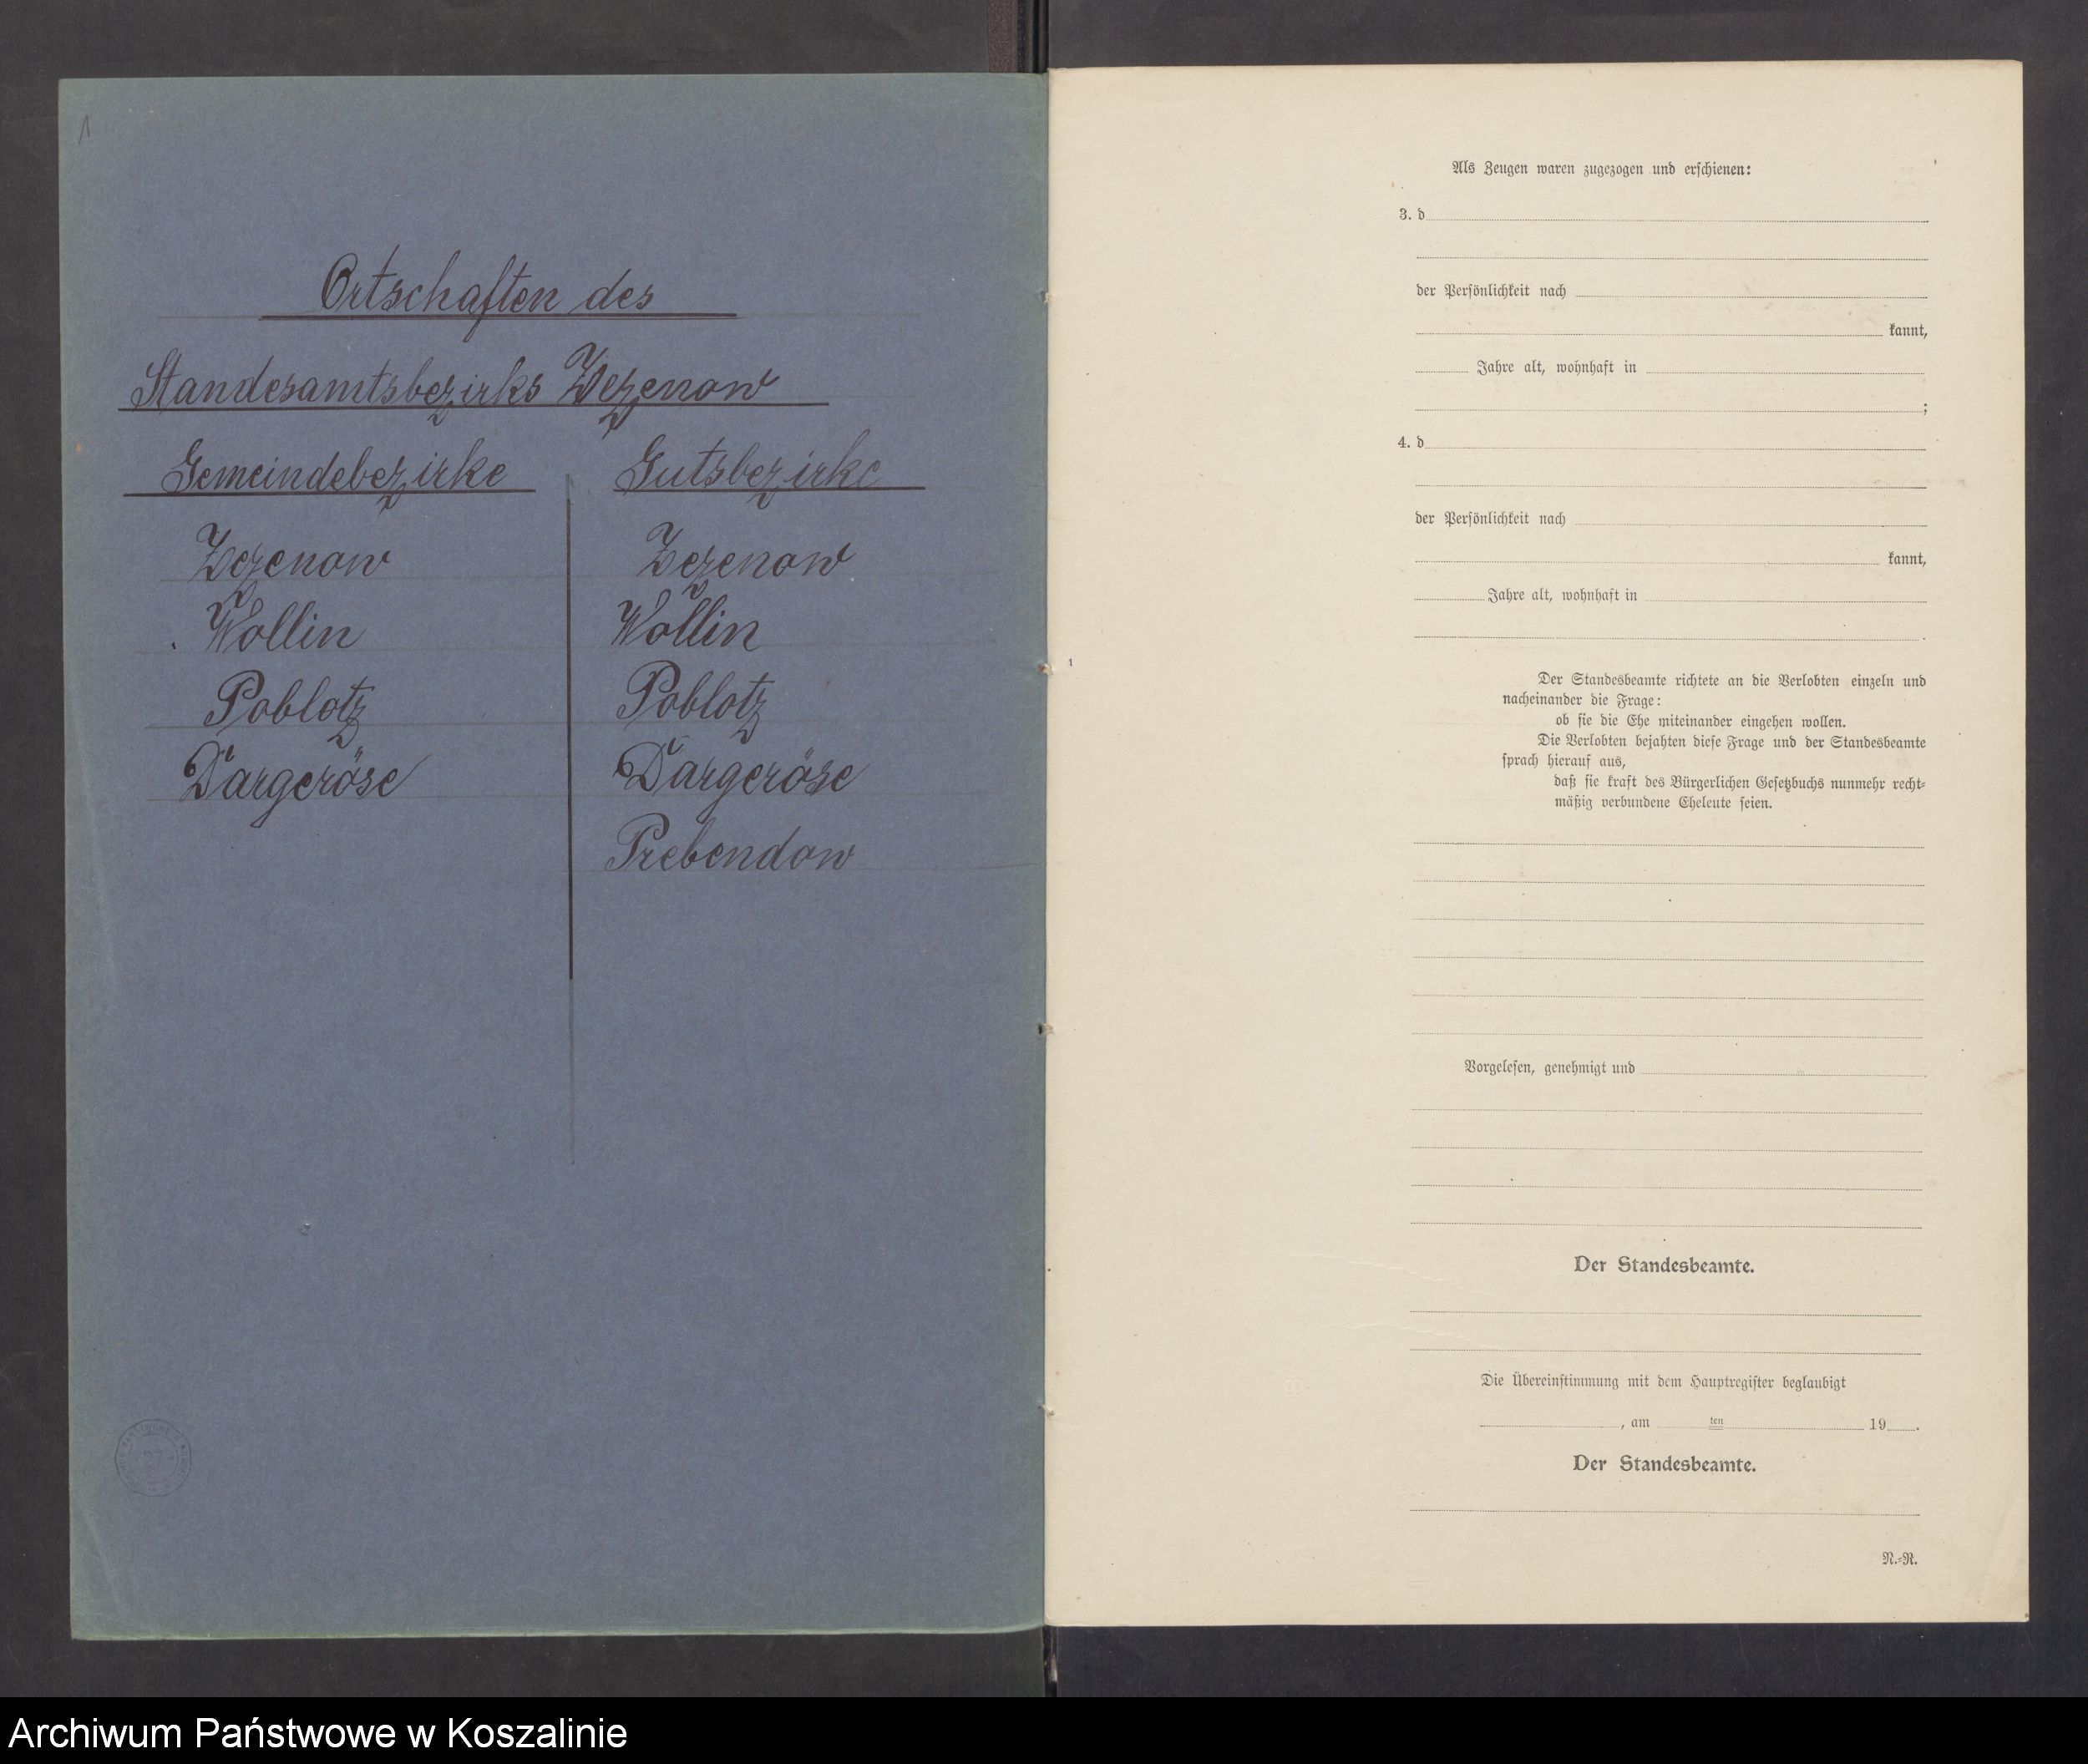 1
Ortschaften des
Standesamtsbezirks Zezenow
Gemeindebezirke
Zezenow
Wollin
Poblotz
Dargeröse
Gutsbezirke
Zezenow
Wollin
Poblotz
Dargeröse
Prebendow
Als Zeugen waren zugezogen und erschienen:
3. d
der Persönlichkeit nach
kannt,
Jahre alt, wohnhaft in
;
4. d
der Persönlichkeit nach
kannt,
Jahre alt, wohnhaft in
.
Der Standesbeamte richtete an die Verlobten einzeln und
nacheinander die Frage:
ob sie die Ehe miteinander eingehen wollen.
Die Verlobten bejahten diese Frage und der Standesbeamte
sprach hierauf aus,
daß sie kraft des Bürgerlichen Gesetzbuchs nunmehr recht-
mäßig verbundene Eheleute seien.
Vorgelesen, genehmigt und
Der Standesbeamte.
Die Übereinstimmung mit dem Hauptregister beglaubigt
, am ten 19 .
Der Standesbeamte.
N.-R.
Archiwum Państwowe w Koszalinie